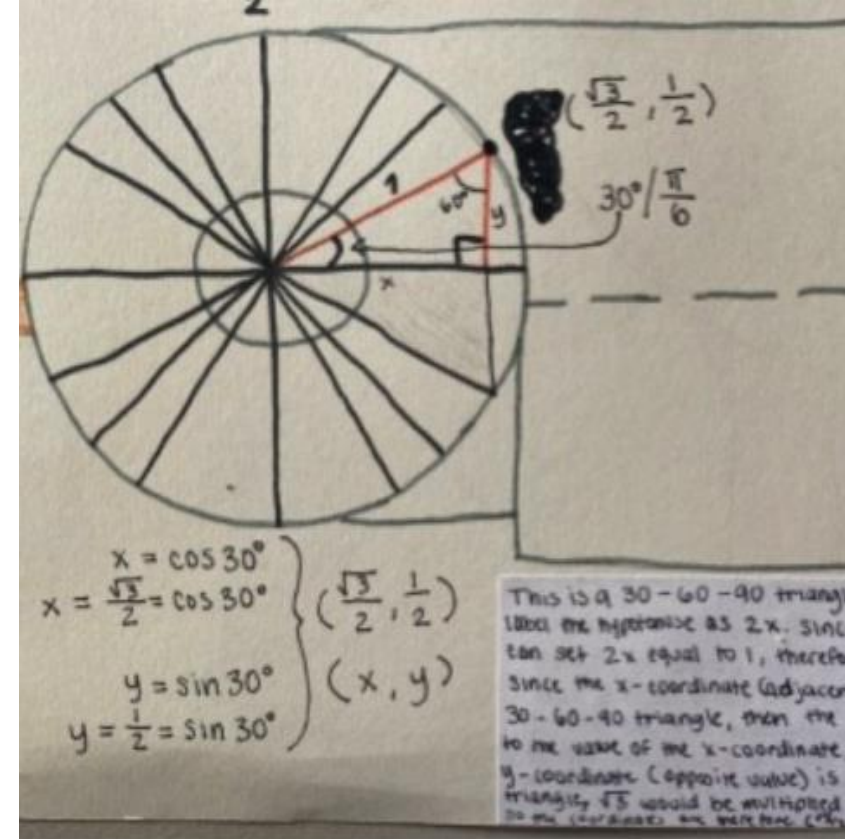 2
(√3/2, 1/2)
30°/π/6
1
60°
y
x
x = cos 30°
x = √3/2 = cos 30°
(√3/2, 1/2)
y = sin 30°
(x, y)
y = 1/2 = sin 30°
This is a 30-60-90 triang
Label the hypotenuse as 2x. Sinc
can set 2x equal to 1, therefo
since the x-coordinate (adjacen
30-60-90 triangle, then the
to the value of the x-coordinate
y-coordinate (opposite value) is
triangle, √3 would be multiplied